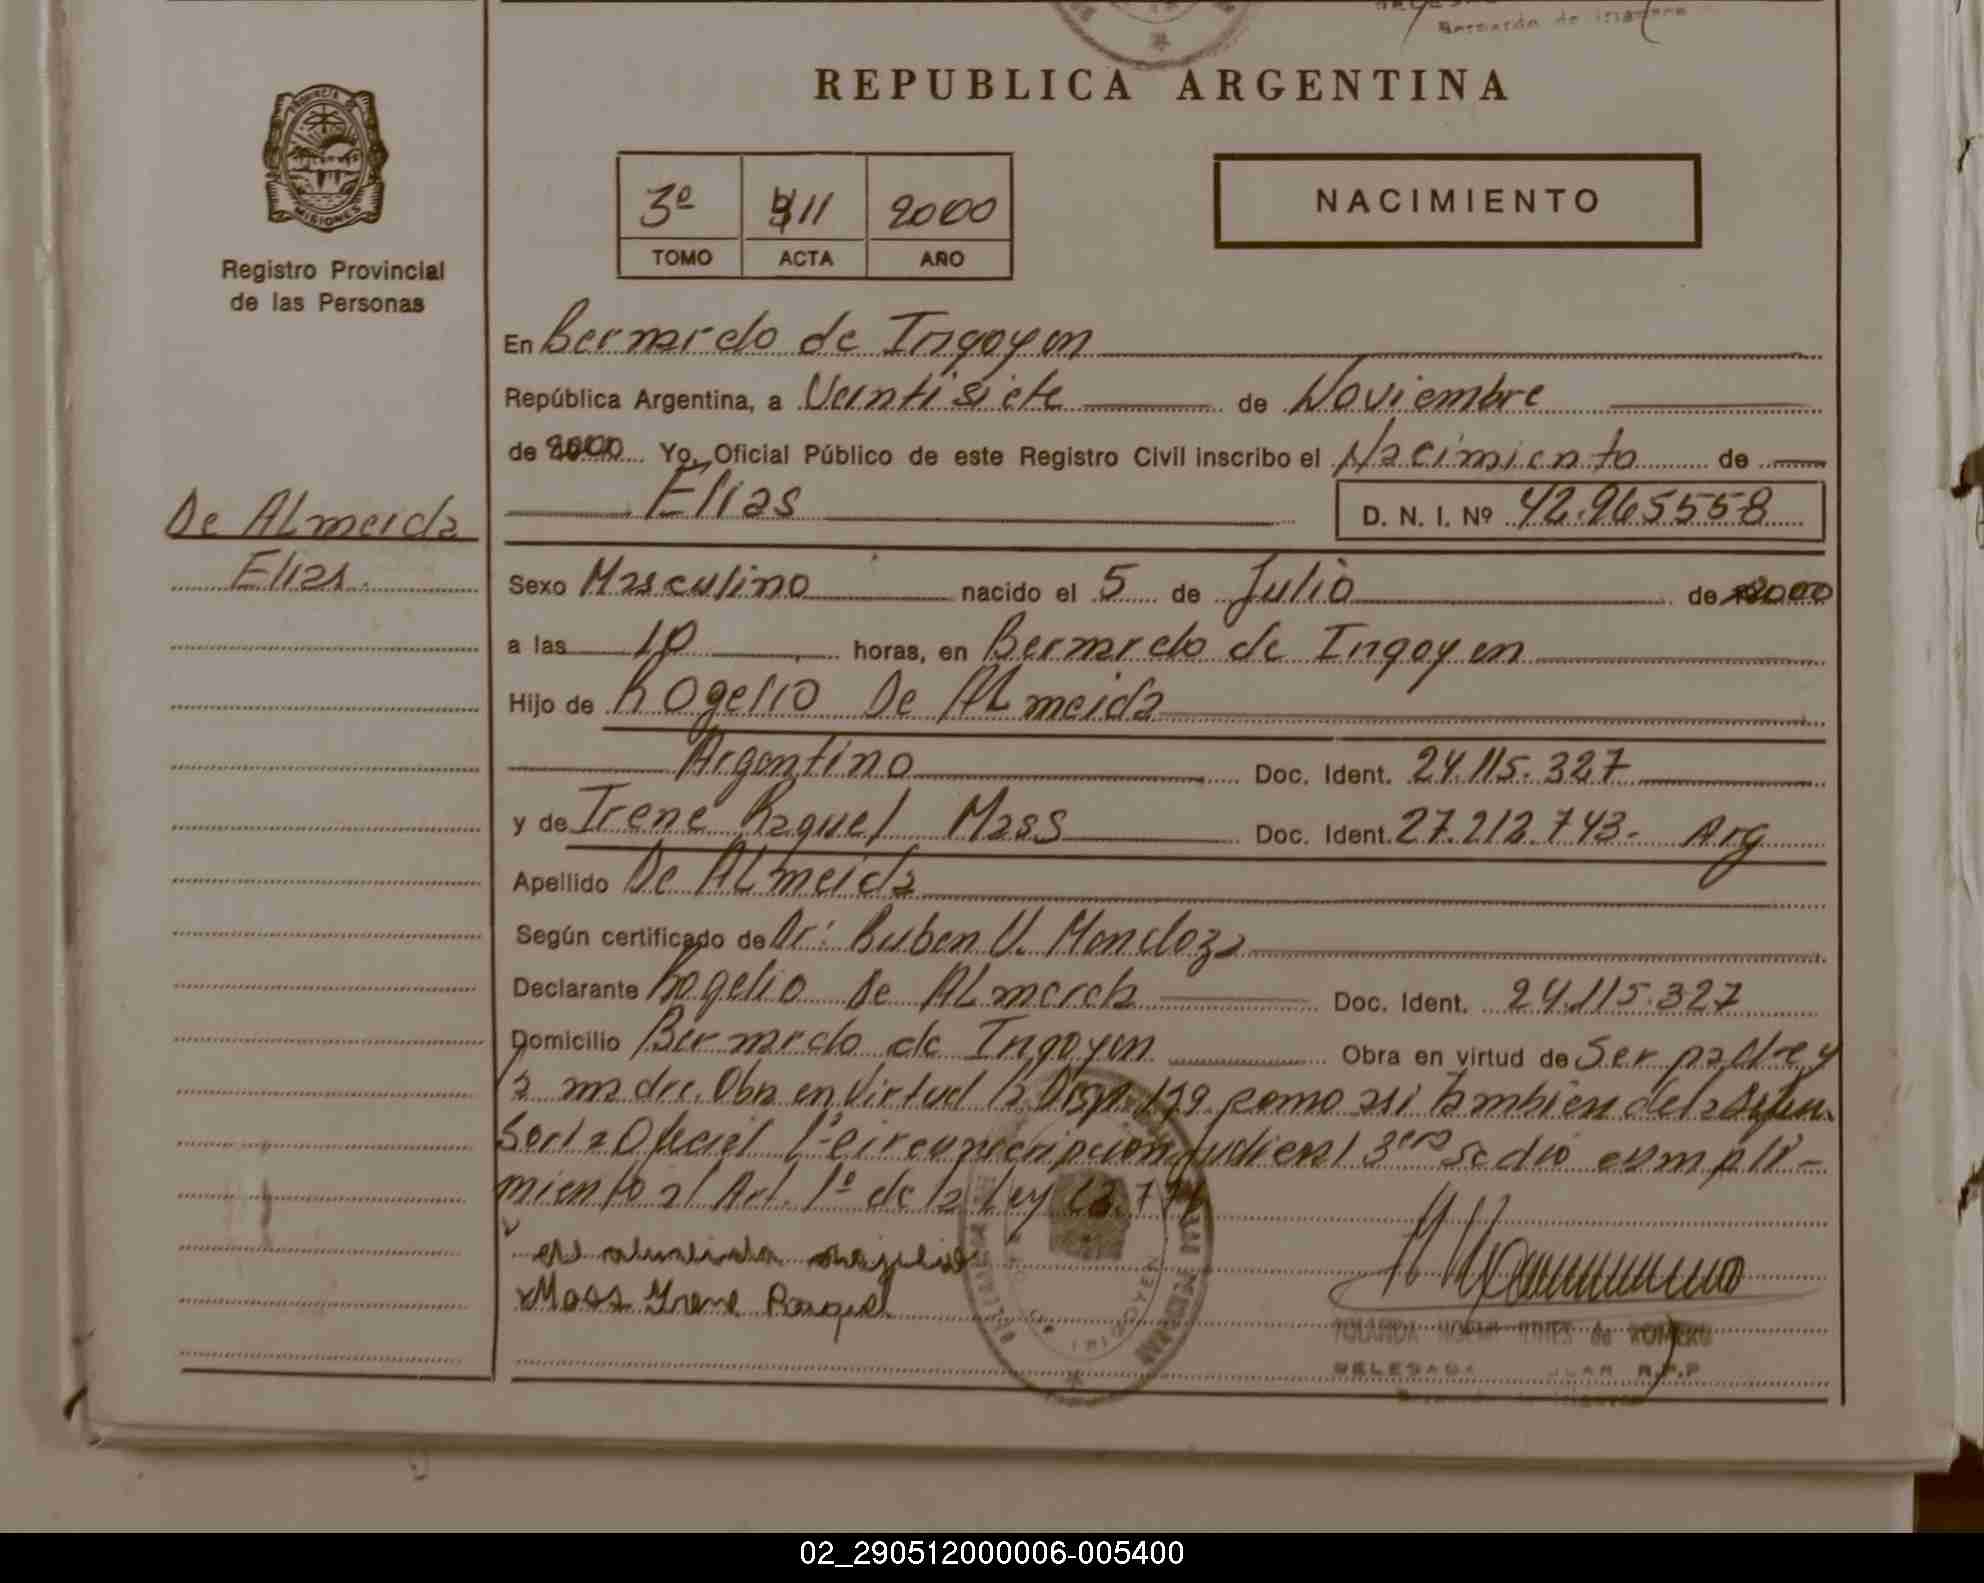 REPUBLICA ARGENTINA
PROVINCIA DE
MISIONES
Registro Provincial
de las Personas
3º 411 2000
TOMO ACTA AÑO
NACIMIENTO
En Bernardo de Irigoyen
República Argentina, a Veintisiete de Noviembre
de 2000 Yo, Oficial Público de este Registro Civil inscribo el Nacimiento de
Elias D. N. I. Nº 42.965558
De ALmeida
Elias.
Sexo Masculino nacido el 5 de Julio de 2000
a las 10 horas, en Bernardo de Irigoyen
Hijo de Rogelio De ALmeida
Argentino Doc. Ident. 24.115.327
y de Irene Raquel Mass Doc. Ident. 27.212.743- Arg
Apellido De ALmeida
Según certificado de Dr: Ruben V. Mendoza
Declarante Rogelio De ALmeida Doc. Ident. 24.115.327
Domicilio Bernardo de Irigoyen Obra en virtud de Ser padre y
la madre. Obra en Virtud la Disp. 199 como asi tambien de la Defen-
soria Oficial 1º Circunscripcion Judicial 3era se dio cumpli-
miento al Art. 1º de la Ley
de almeida rogelio
Mass Irene Raquel
YOLANDA de ROMERO
DELEGADA R.P.P
02_290512000006-005400